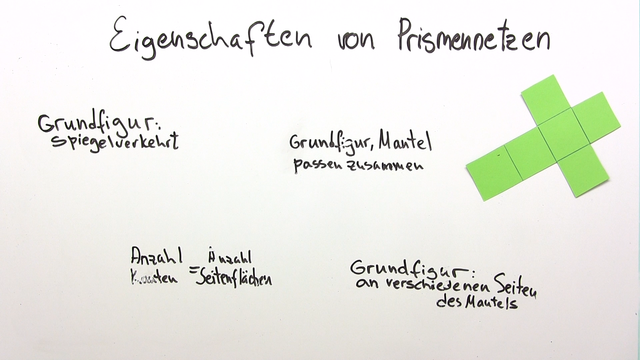 Eigenschaften von Prismennetzen
Grundfigur:
spiegelverkehrt
Grundfigur, Mantel
passen zusammen
Anzahl
Kanten
=
Anzahl
Seitenflächen
Grundfigur:
an verschiedenen Seiten
des Mantels